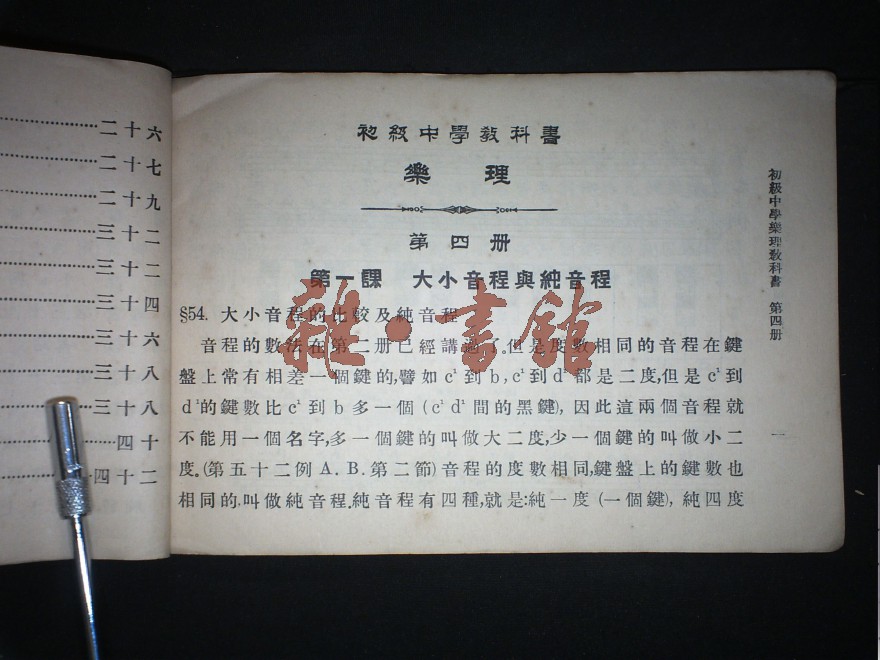 二十六
二十七
二十九
三十二
三十二
三十四
三十六
三十八
三十八
四十
四十二
初級中學教科書
樂理
第四册
第一課 大小音程與純音程
§54. 大小音程的比較及純音程
音程的數法在第二册已經講過了,但是度數相同的音程在鍵
盤上常有相差一個鍵的,譬如 c¹ 到 b, c¹ 到 d¹ 都是二度,但是 c¹ 到
d¹ 的鍵數比 c¹ 到 b 多一個 (c¹ d¹ 間的黑鍵), 因此這兩個音程就
不能用一個名字,多一個鍵的叫做大二度,少一個鍵的叫做小二
度. (第五十二例 A. B. 第二節) 音程的度數相同,鍵盤上的鍵數也
相同的,叫做純音程.純音程有四種,就是:純一度 (一個鍵), 純四度
初級中學樂理教科書 第四册
一
雜·書館